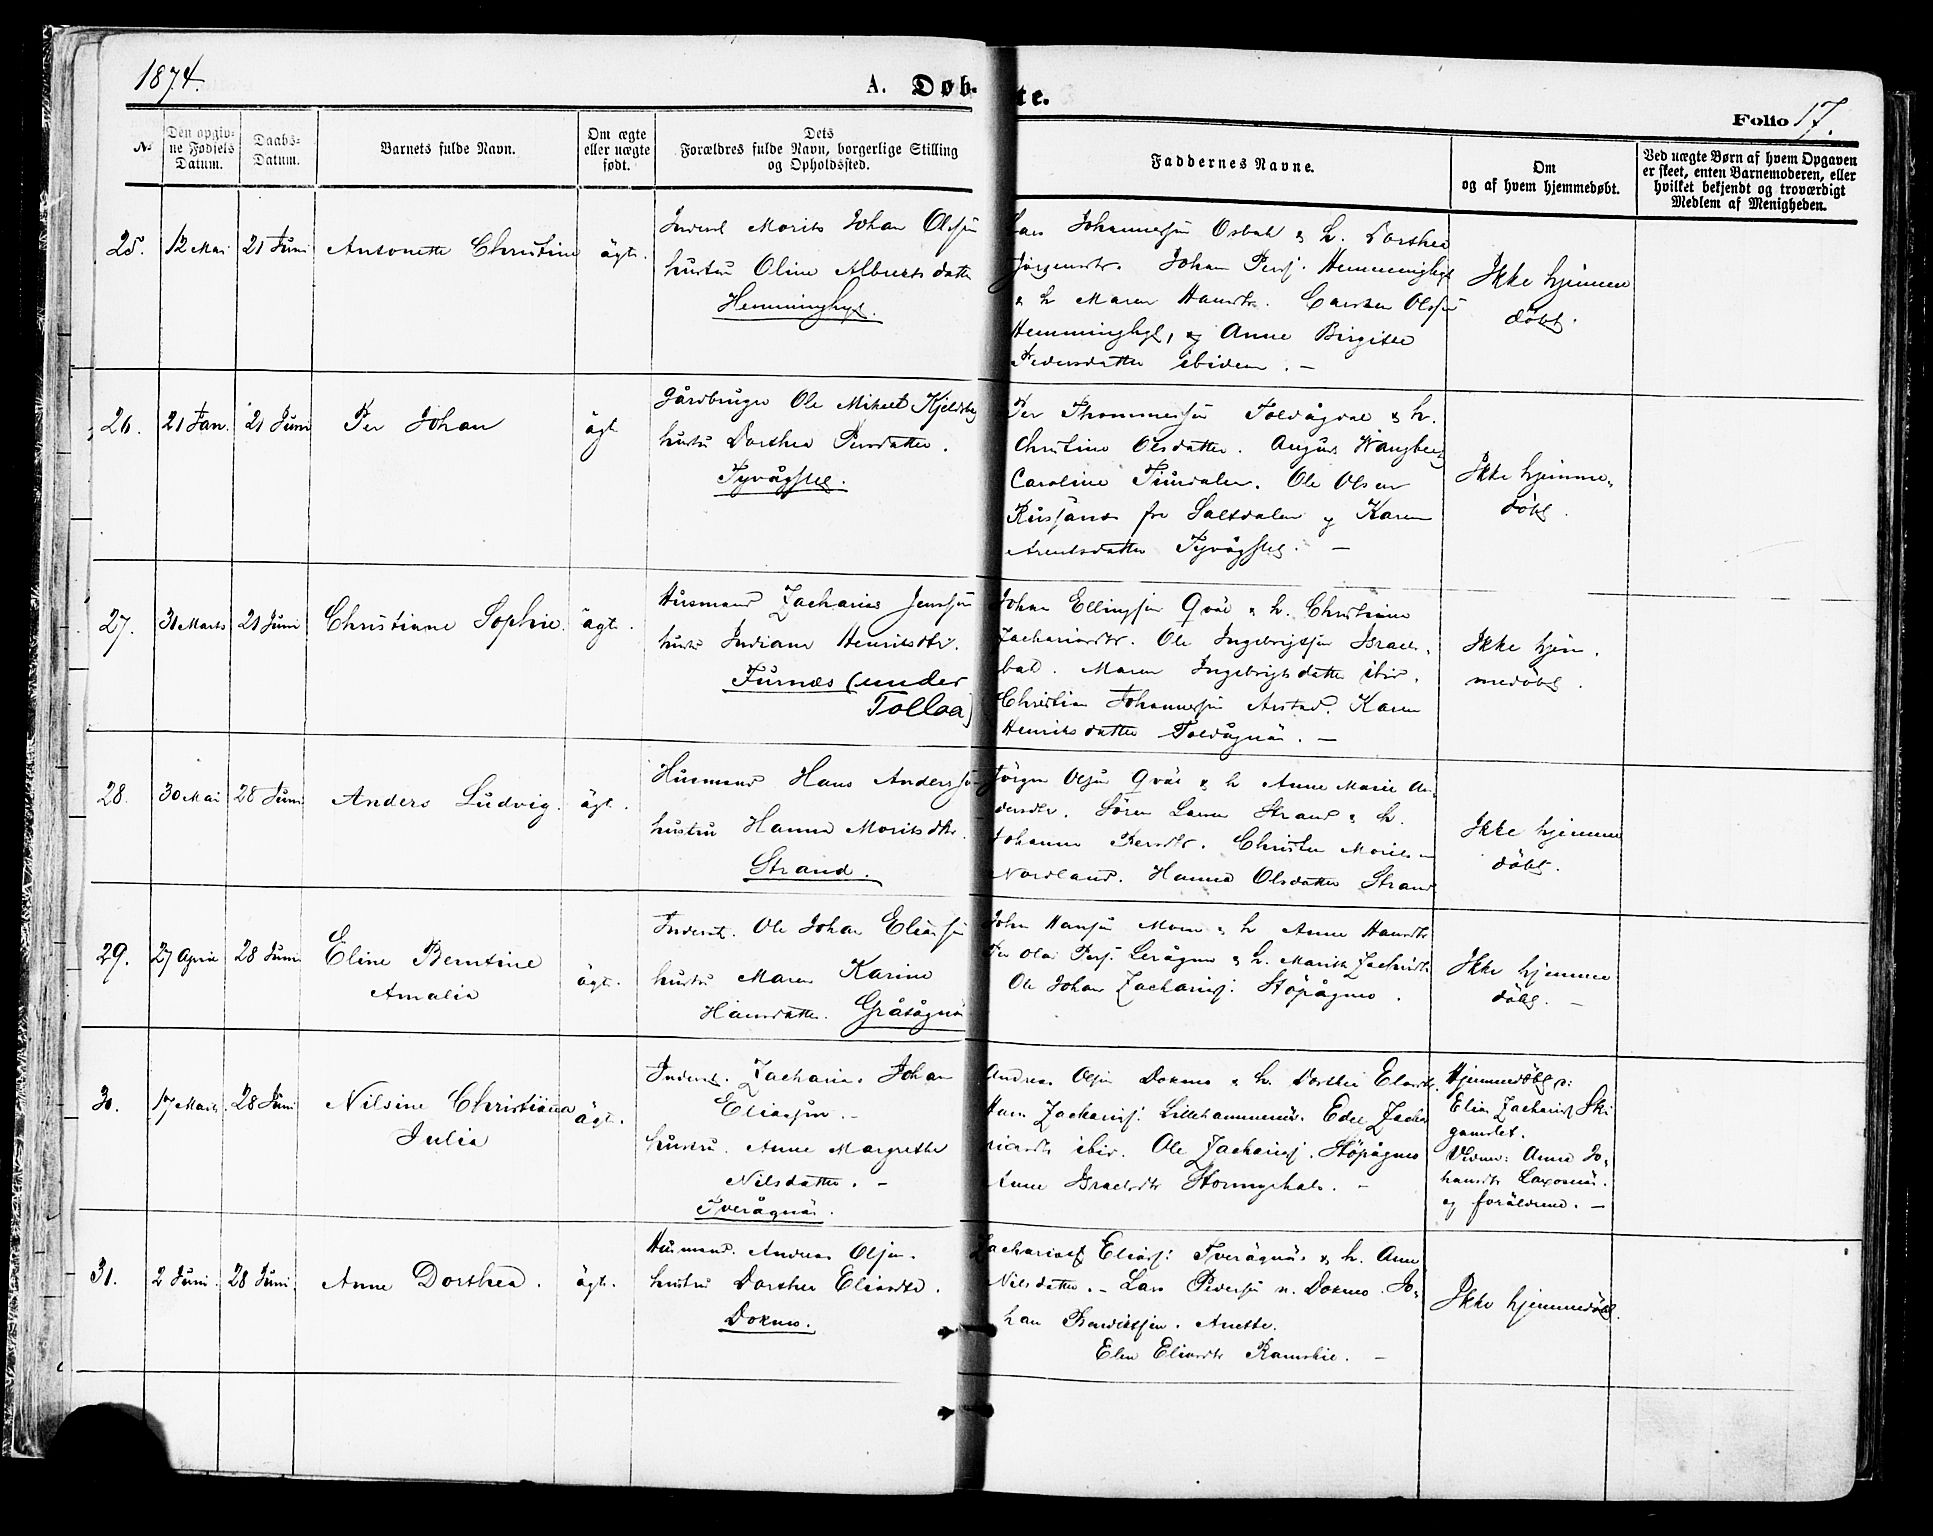 1874.
A. Døb-
te.
Folio 17.
№
Den opgiv-
ne Fødsels
Datum.
Daabs-
Datum.
Barnets fulde Navn.
Om ægte
eller uægte
født.
Dets
Forældres fulde Navn, borgerlige Stilling
og Opholdssted.
Faddernes Navne.
Om
og af hvem hjemmedøbt.
Ved uægte Børn af hvem Opgaven
er skeet, enten Barnemoderen, eller
hvilket bekjendt og troværdigt
Medlem af Menigheden.
25. 12 Mai 21 Juni Antonette Christine ägt.
Inderst Morits Johan Olssøn
hustru Oline Albertsdatter
Hemminghyt.
Johannessøn Osbak & h. Dorthea
Jörgensdtr. Johan Perss. Hemminghyt
& h Maren Hansdtr. Carsten Olssøn
Hemminghyt, og Anne Birgitte
Pedersdatter ibidem. —
Ikke hjemme
døbt.
26. 21 Jan. 21 Juni Per Johan ägt
Gårdbruger Ole Mikael Kjeldsberg
hustru Dorthea Persdatter.
Tyvågflåg.
Per Thommessøn Toldågdal & h.
Christine Olsdatter. August Wangberg
Caroline Tiurdalen. Ole Olsen
Russånes fra Saltdalen og Karen
Arentsdatter Tyvågflåg. —
Ikke hjemme-
døbt.
27. 31 Marts 21 Juni Christiane Sophie. ägt.
Husmand Zacharias Jenssøn
hustru Indiane Henriksdtr.
Furnæs (under
Tollåa)
Johan Ellingssøn Qväl & h. Christiane
Zachariasdtr. Ole Ingebrigtsøn Israels-
bak. Maren Ingebrigtsdatter ibid.
Christian Johannessøn Arstad. Karen
Henriksdatter Toldågnäs. —
Ikke hjem-
medøbt.
28. 30 Mai 28 Juni Anders Ludvig. ägt.
Husmand Hans Anderssøn
hustru Hanna Moritsdtr.
Strand.
Jörgen Olssøn Qväl & h Anne Marie An-
dersdtr. Sören Strand & h.
Johanna Persdtr. Christen Moritsen
Nordland. Hanna Olsdatter Strand
Ikke hjemme
døbt.
29. 27 April 28 Juni Eline Berntine
Amalia
ägt.
Inderst. Ole Johan Eliassøn
hustru Maren Karine
Hansdatter. Gråtågnäs
John Hanssøn Moen & h Anne Hansdtr
Per Ola Perss. Leirågmo & h. Marith Zachrisdtr
Ole Johan Zachariass. Stöpågmo.
Ikke hjemme
døbt. —
30. 17 Marts 28 Juni Nilsine Christiana
Julia
ägt.
Inderst. Zacharias Johan
Eliassøn. —
hustru. Anne Margrethe
Nilsdatter. —
Tverågnäs.
Andreas Olssøn Dokmo & h. Dorthea Eliasdtr.
Hans Zachariass. Lillehammeren. Edel Zacha-
riasdtr ibid. Ole Zachariass. Stöpågmo
Anne Israelsdtr Stormyrhals. —
Hjemmedøbt af:
Elias Zachariass. Ski
gamslet.
Vidner: Anne Jo-
hansdtr Laxosnäs.
og forældrene. —
31. 2 Juni. 28 Juni. Anne Dorthea. ägt.
Husmand. Andreas Olssøn.
hustru Dorthea Eliasdtr.
Dokmo.
Zacharias Eliass: Tverågnäs & h. Anne
Nilsdatter. — Lars Pedersøn n. Dokmo. Jo-
han Benedictsøn. Anette.
Elen Eliasdtr Ramskie. —
Ikke hjemmedøbt.